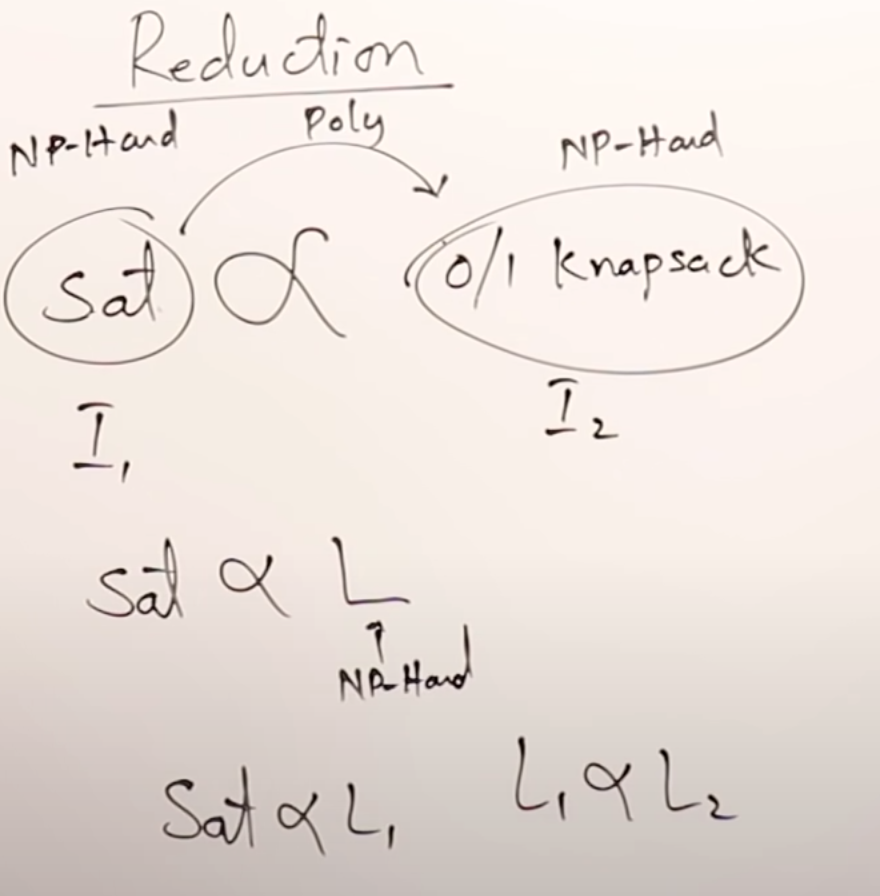 Reduction
NP-Hard Poly NP-Hard
Sat ∝ 0/1 Knapsack
I₁ I₂
Sat ∝ L
NP-Hard
Sat ∝ L₁ L₁ ∝ L₂